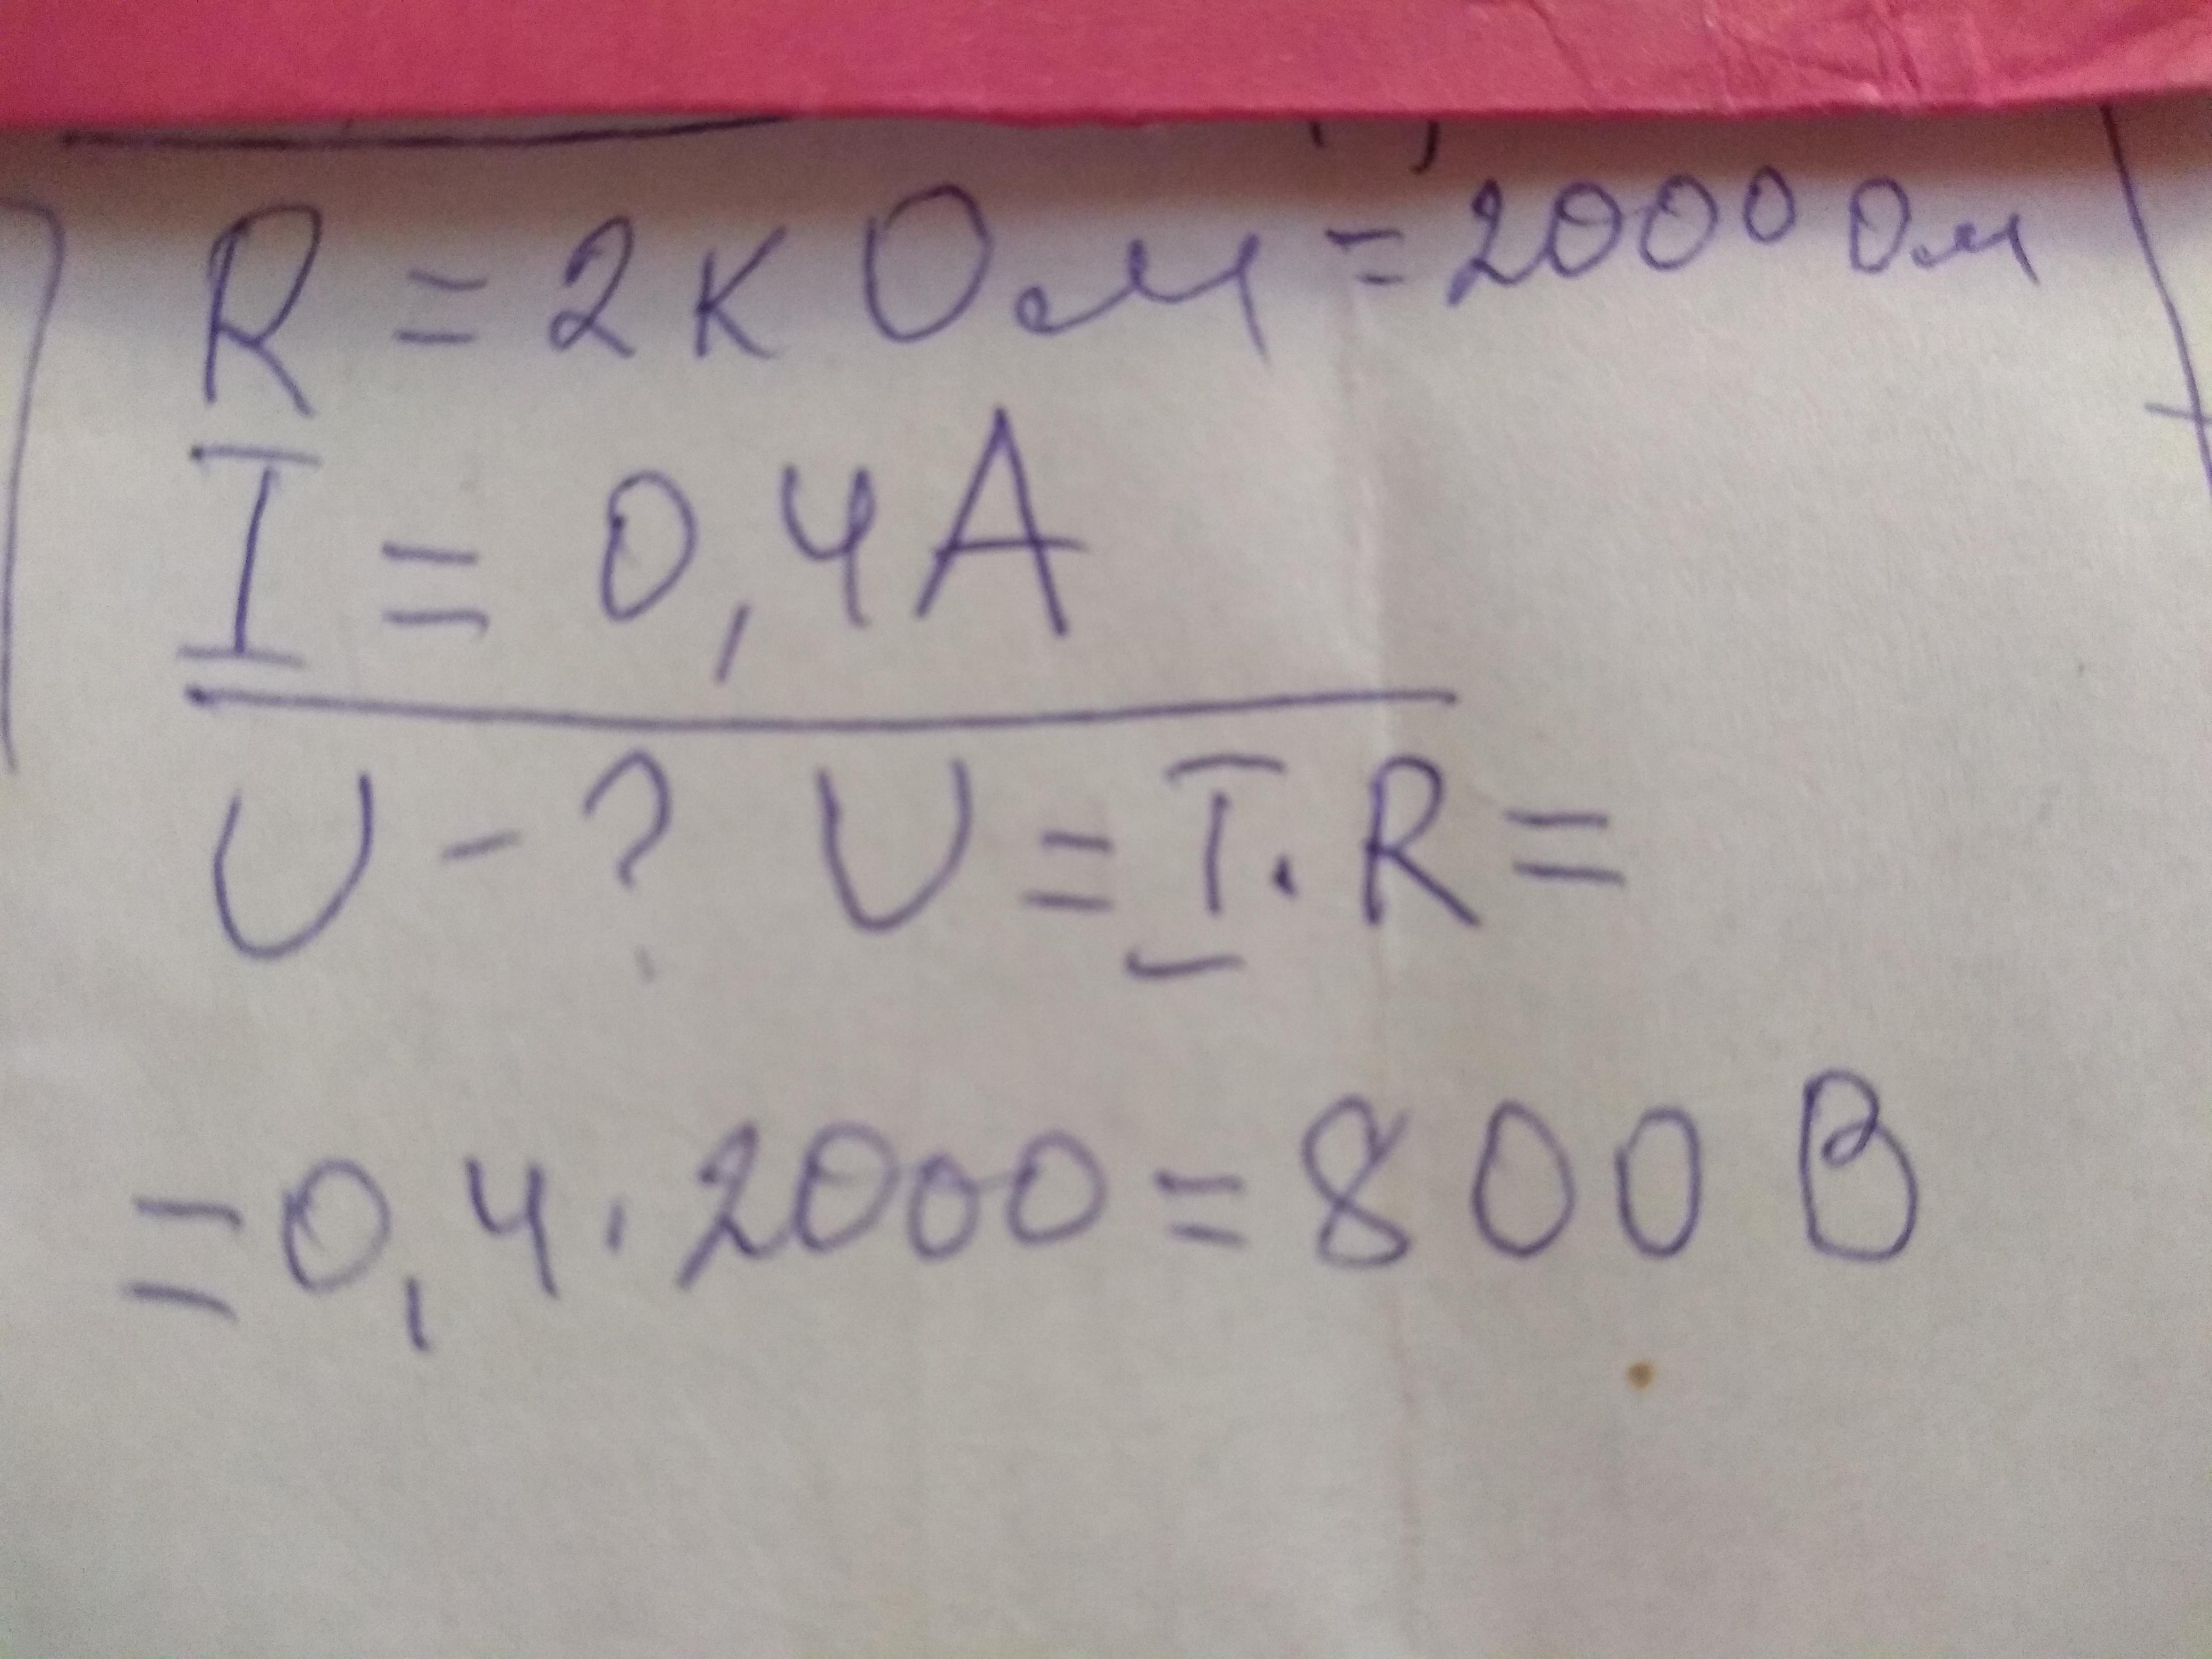 R = 2 к Ом = 2000 Ом
I = 0,4 А
U - ? U = I · R =
= 0,4 · 2000 = 800 В